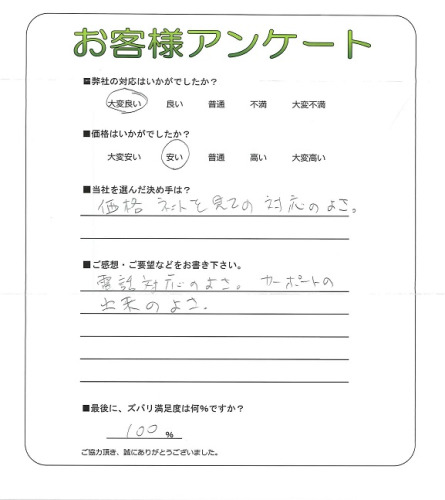 お客様アンケート
■弊社の対応はいかがでしたか?
大変良い 良い 普通 不満 大変不満
■価格はいかがでしたか?
大変安い 安い 普通 高い 大変高い
■当社を選んだ決め手は?
価格 ネットを見ての対応のよさ。
■ご感想・ご要望などをお書き下さい。
電話対応のよさ。カーポートの
出来のよさ.
■最後に、ズバリ満足度は何%ですか?
100 %
ご協力頂き、誠にありがとうございました。